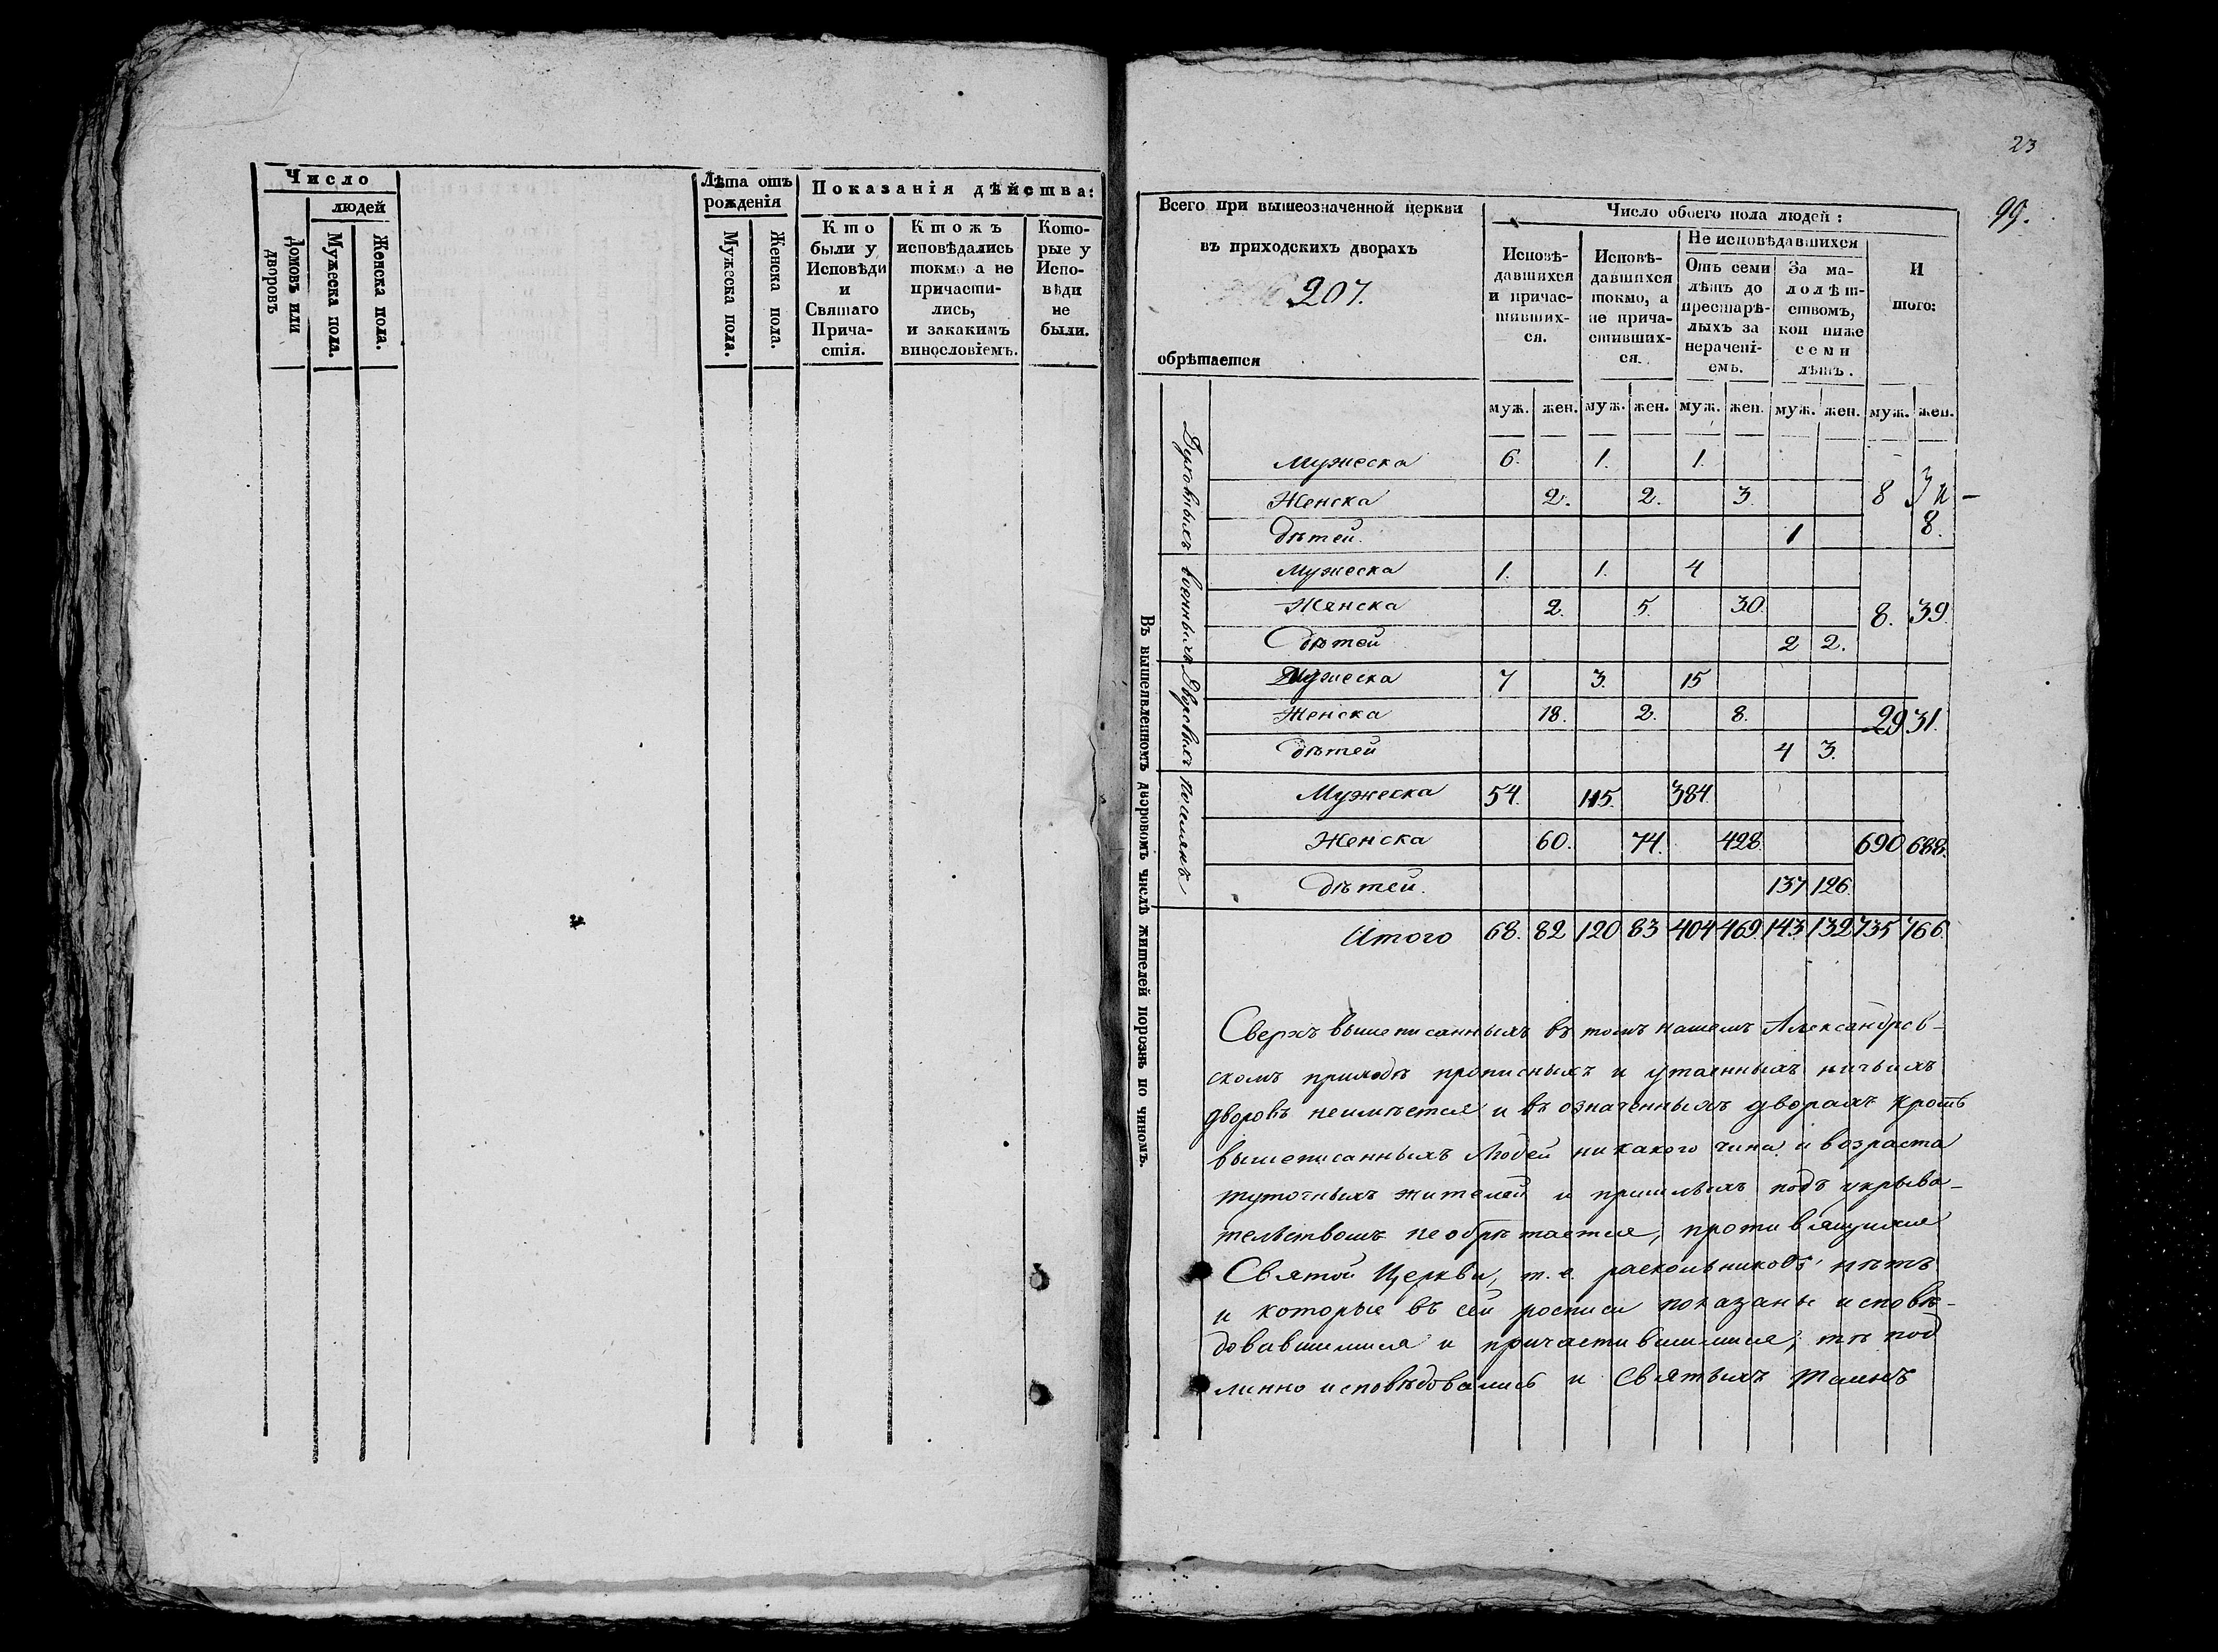 Число
людей
Домовъ или дворовъ
Мужеска пола.
Женска пола.
Лѣта отъ
рожденія
Мужеска пола.
Женска пола.
Показанія дѣйства:
Кто
были у
Исповѣди
и
Святаго
Прича-
стія.
Ктожъ
исповѣдались
токмо а не
причасти-
лись,
и закакимъ
винословіемъ.
Кото-
рые у
Испо-
вѣди
не
были.
23
99.
Всего при вышеозначенной церкви
въ приходскихъ дворахъ
207.
обрѣтается
Число обоего пола людей:
Исповѣ-
давшихся
и причас-
тивших-
ся.
Исповѣ-
давшихся
токмо, а
не прича-
стивших-
ся.
Не исповѣдавшихся
Отъ семи
лѣтъ до
престарѣ-
лыхъ за
нерачені-
емъ.
За ма-
лолѣт-
ствомъ,
кои ниже
семи
лѣтъ.
И
того:
муж. жен. муж. жен. муж. жен. муж. жен. муж. жен.
Въ вышеявленномъ дворовомъ числѣ жителей порознь по чиномъ.
Духовныхъ
Мужеска 6. 1. 1.
Женска 2. 2. 3. 8
дѣтей. 1 8.
военныхъ
Мужеска 1. 1. 4
Женска 2. 5. 30. 8. 39.
дѣтей 2 2.
Дворовыхъ
Мужеска 7 3. 15
Женска 18. 2. 8. 29 31.
дѣтей 4 3.
Поселянъ
Мужеска 54. 115. 384.
Женска 60. 74. 428. 690 688.
дѣтей. 137 126.
Итого 68. 82 120 83 404 469. 143. 132 735 766.
Сверхъ вышеписанныхъ въ томъ нашемъ Александров-
скомъ приходѣ прописныхъ и утаенныхъ ничьихъ
дворовъ неимѣется и въ означенныхъ дворахъ кромѣ
вышеписанныхъ людей никакого чина и возраста
туточныхъ жителей и пришлыхъ подъ укрыва-
тельствомъ не обрѣтается, противящихся
Святой Церкви, т.е. раскольниковъ нѣтъ
и которые въ сей росписи показаны исповѣ-
довавшимися и причастившимися, тѣ под
линно исповѣдовались и Святыхъ таинъ